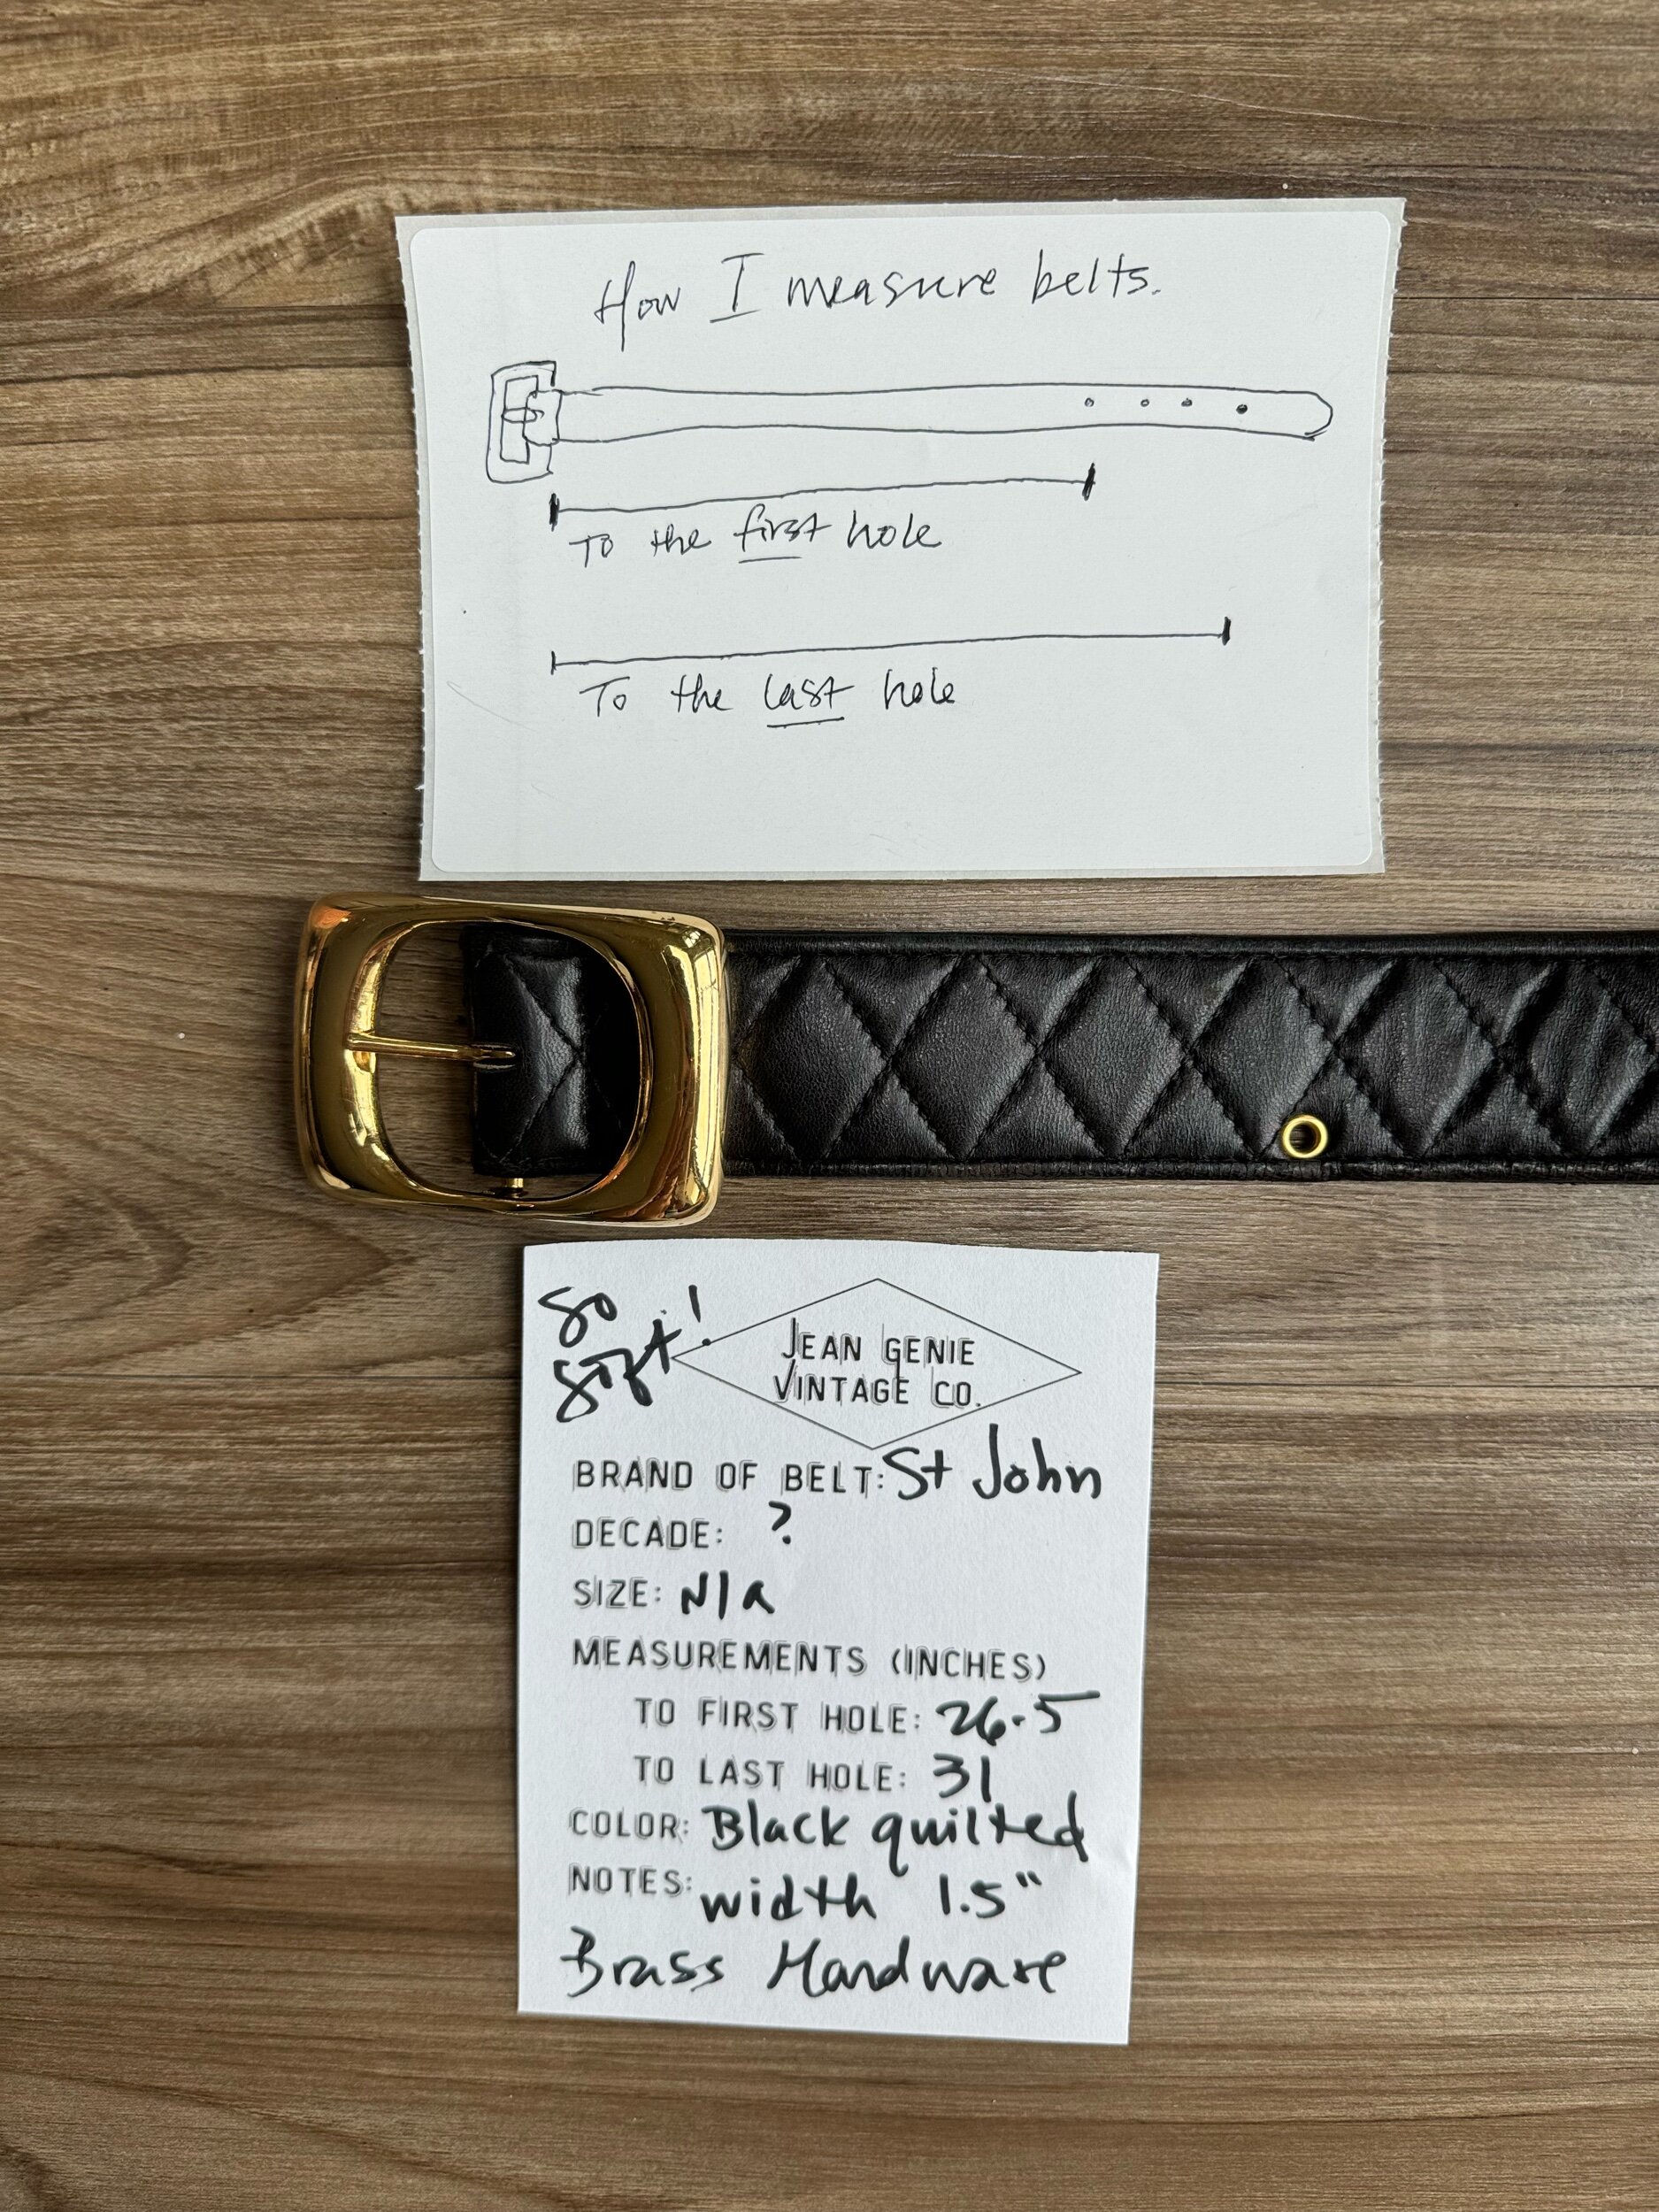 How I measure belts.
To the first hole
To the last hole
So
soft!
JEAN GENIE
VINTAGE CO.
BRAND OF BELT: St John
DECADE: ?
SIZE: N/a
MEASUREMENTS (INCHES)
TO FIRST HOLE: 26.5
TO LAST HOLE: 31
COLOR: Black quilted
NOTES: width 1.5"
Brass Hardware